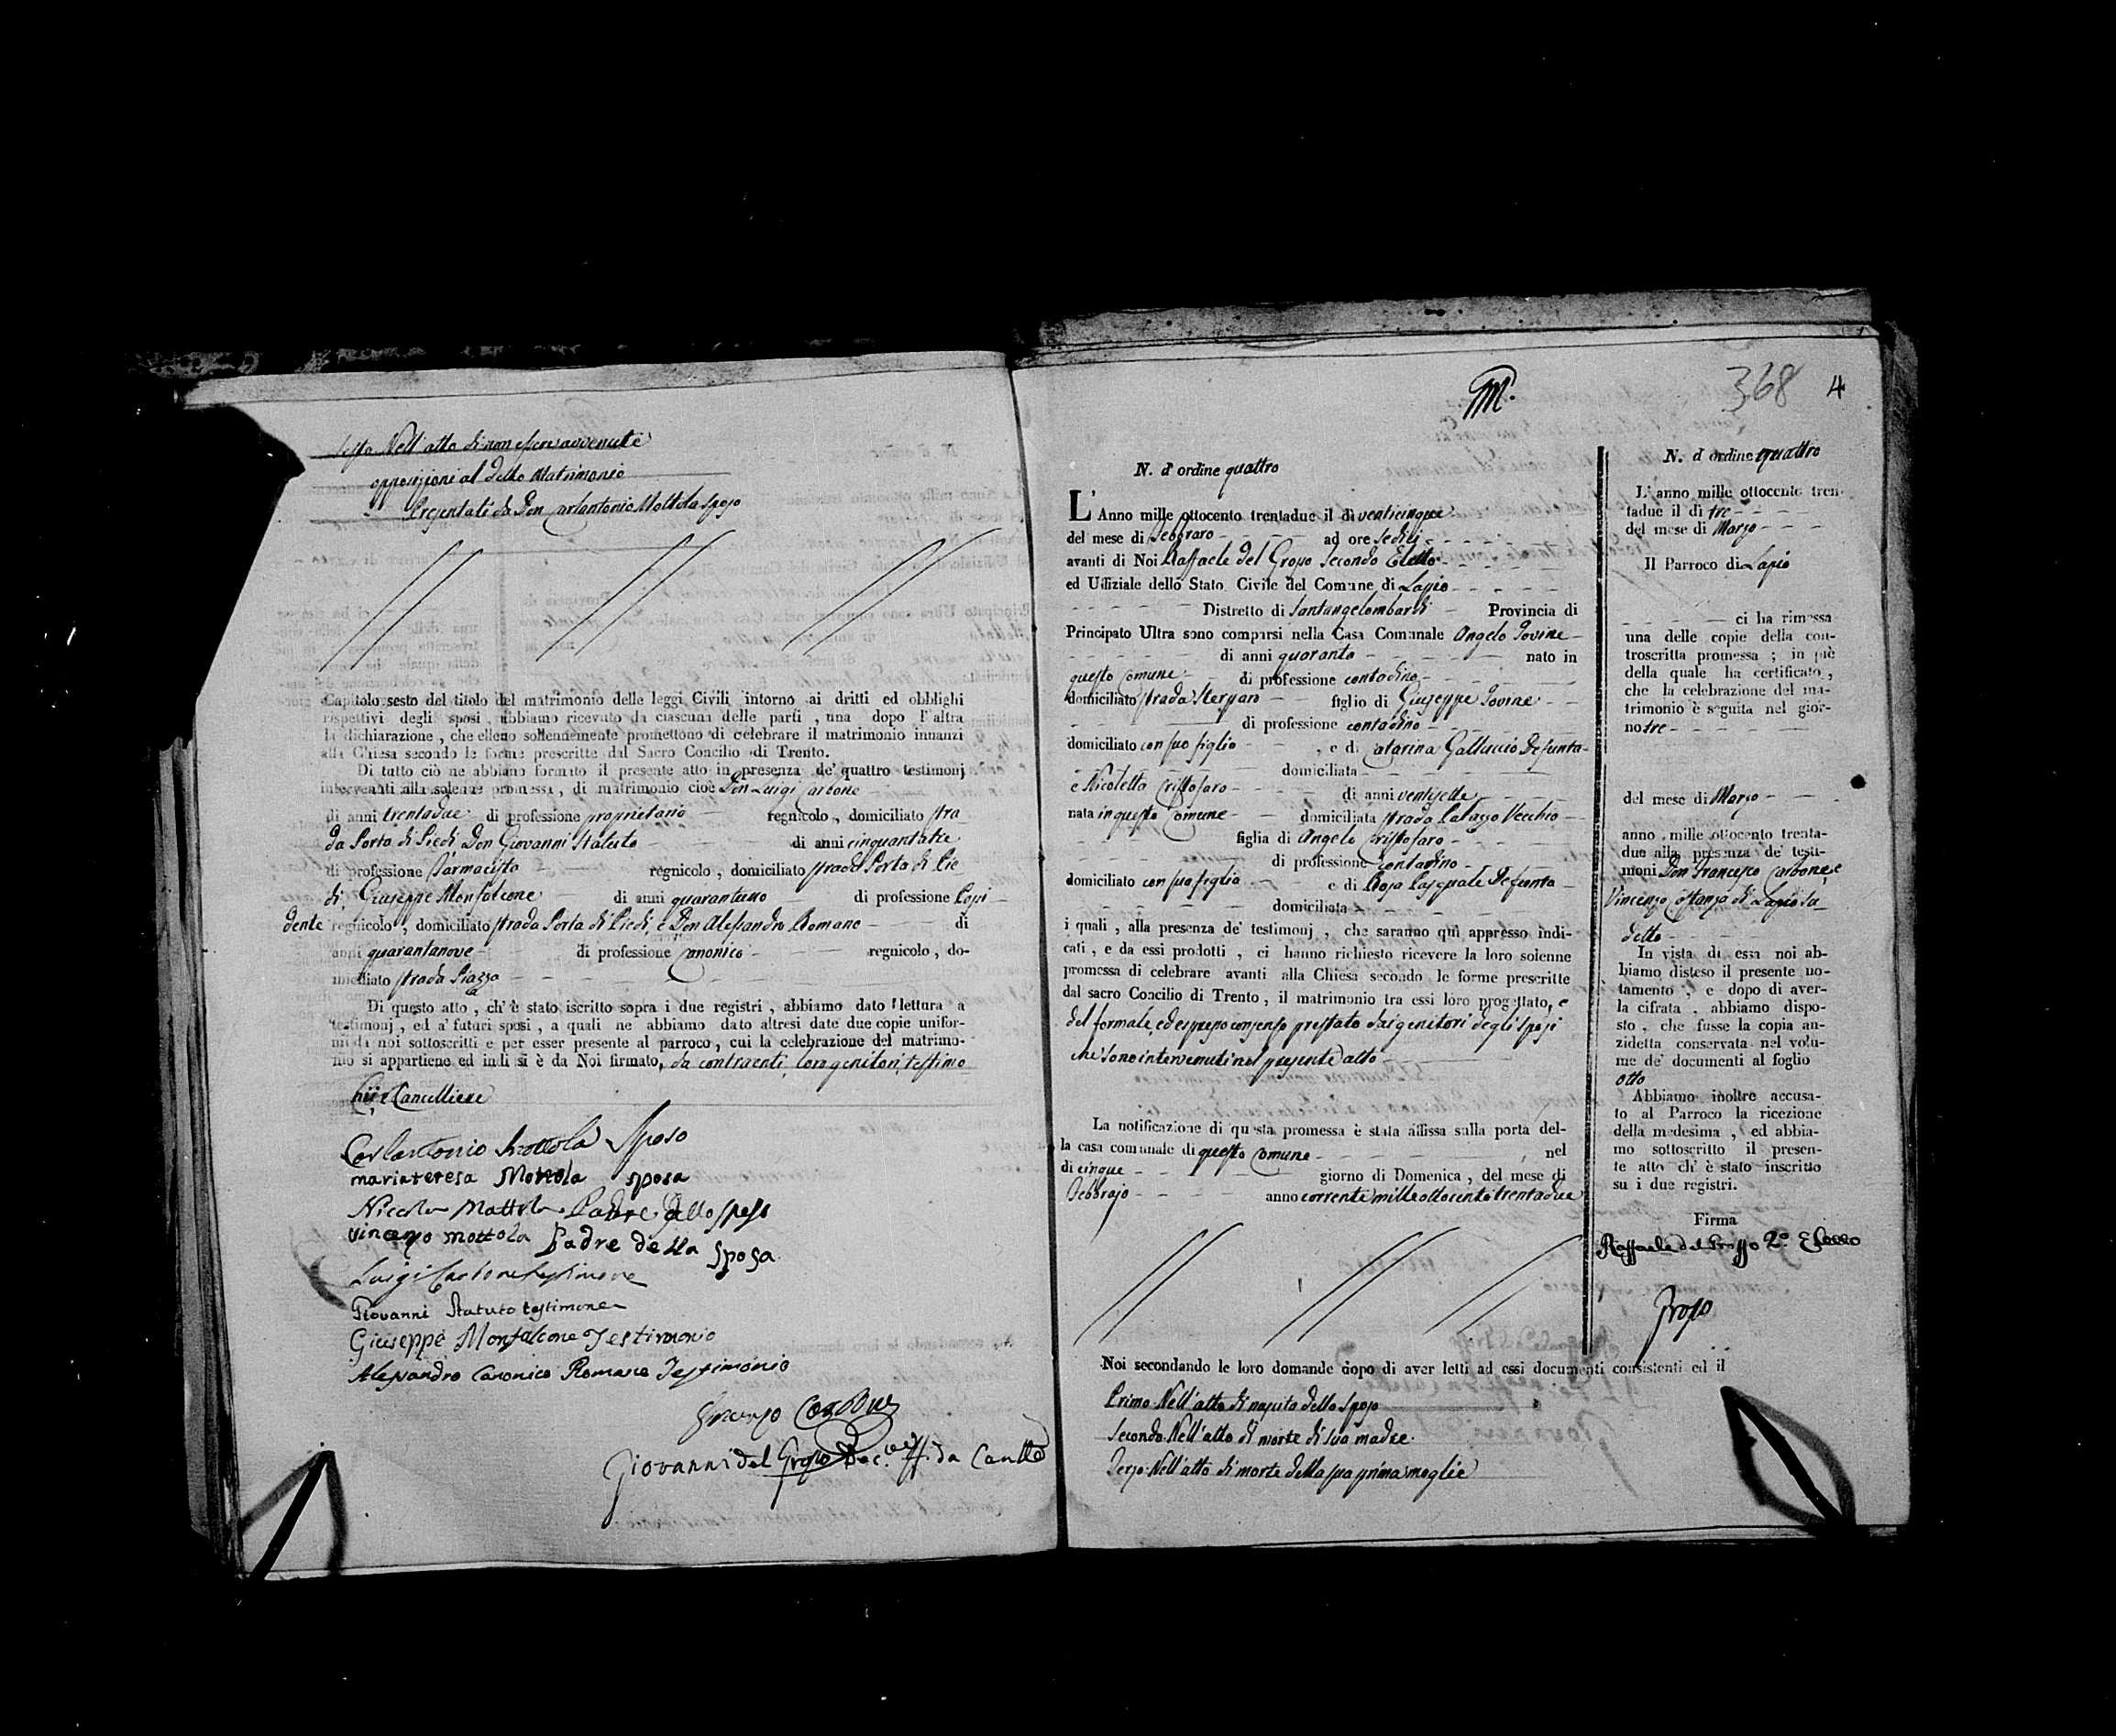 sesto Nell'atto di non essere avvenute
opposizioni al detto Matrimonio
Presentati da Don Carlantonio Mottola sposo
Capitolo sesto del titolo del matrimonio delle leggi Civili intorno ai dritti ed obblighi
rispettivi degli sposi, abbiamo ricevuto da ciascuna delle parti, una dopo l'altra
la dichiarazione, che elleno sollennemente promettono di celebrare il matrimonio innanzi
alla Chiesa secondo le forme prescritte dal Sacro Concilio di Trento.
Di tutto ciò ne abbiamo formato il presente atto in presenza de' quattro testimonj
intervenuti alla solenne promessa, di matrimonio cioè Don Luigi Carbone
di anni trentadue di professione proprietario regnicolo, domiciliato stra
da Porta di Piedi Don Giovanni Statuto di anni cinquantatre
di professione Farmacista regnicolo, domiciliato strada Porta di Pie
di, Giuseppe Monfalcone di anni quarantuno di professione Possi
dente regnicolo, domiciliato strada Porta di Piedi, e Don Alessandro Romano di
anni quarantanove di professione Canonico regnicolo, do-
miciliato strada Piazza
Di questo atto, ch'è stato iscritto sopra i due registri, abbiamo dato lettura a
testimonj, ed a' futuri sposi, a quali ne abbiamo dato altresì date due copie unifor-
mi da noi sottoscritti e per esser presente al parroco, cui la celebrazione del matrimo-
nio si appartiene ed indi si è da Noi firmato, da contraenti, loro genitori, testimo
nij e Cancelliere
Carlantonio Mottola Sposo
mariateresa Mottola sposa
Niccola Mottola Padre dello sposo
vincenzo mottola Padre della sposa
Luigi Carbone testimone
Giovanni Statuto testimone
Giuseppe Monfalcone Testimonio
Alessandro Canonico Romano Testimonio
Giovanni del Grosso
M.
368 4
N. d'ordine quattro
L'Anno mille ottocento trentadue il dì venticinque
del mese di Febbraro ad ore sedici
avanti di Noi Raffaele del Grosso Secondo Eletto
ed Uffiziale dello Stato Civile del Comune di Lapio
Distretto di Santangelombardi Provincia di
Principato Ultra sono comparsi nella Casa Comunale Angelo Iovine
di anni quaranta nato in
questo comune di professione contadino
domiciliato strada Sterparo figlio di Giuseppe Iovine
di professione contadino
domiciliato con suo figlio, e di Catarina Galluccio Defunta
domiciliata
e Nicoletta Cristofaro di anni ventisette
nata in questo Comune domiciliata strada Palazzo Vecchio
figlia di Angelo Cristofaro
di professione contadino
domiciliato con sua figlia e di Rosa Pasquale Defunta
domiciliata
i quali, alla presenza de' testimonj, che saranno qui appresso indi-
cati, e da essi prodotti, ci hanno richiesto ricevere la loro solenne
promessa di celebrare avanti alla Chiesa secondo le forme prescritte
dal sacro Concilio di Trento, il matrimonio tra essi loro progettato, e
del formale, ed espresso consenso prestato dai genitori degli sposi
che sono intervenuti nel presente atto
La notificazione di questa promessa è stata affissa sulla porta del-
la casa comunale di questo Comune, nel
di cinque giorno di Domenica, del mese di
Febbrajo anno corrente mille ottocento trentadue
Noi secondando le loro domande dopo di aver letti ad essi documenti consistenti ed il
Primo Nell'atto di nascita dello sposo
Secondo Nell'atto di morte di sua madre
Terzo Nell'atto di morte della sua prima moglie
N. d'ordine quattro
L'anno mille ottocento tren-
tadue il dì tre
del mese di Marzo
Il Parroco di Lapio
ci ha rimessa
una delle copie della con-
troscritta promessa; in piè
della quale ha certificato,
che la celebrazione del ma-
trimonio è seguita nel gior-
no tre
del mese di Marzo
anno mille ottocento trenta-
due alla presenza de' testi-
moni Don Francesco Carbone, e
Vincenzo Costanzo di Lapio su
detto
In vista di essa noi ab-
biamo disteso il presente no-
tamento, e dopo di aver-
la cifrata, abbiamo dispo-
sto, che fusse la copia an-
zidetta conservata nel volu-
me de' documenti al foglio
otto
Abbiamo inoltre accusa-
to al Parroco la ricezione
della medesima, ed abbia-
mo sottoscritto il presen-
te atto ch'è stato inscritto
su i due registri.
Firma
Raffaele del Grosso 2.º Eletto
Grosso